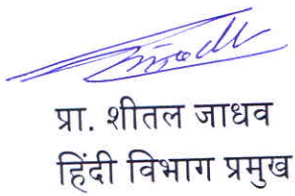 प्रा. शीतल जाधव
हिंदी विभाग प्रमुख